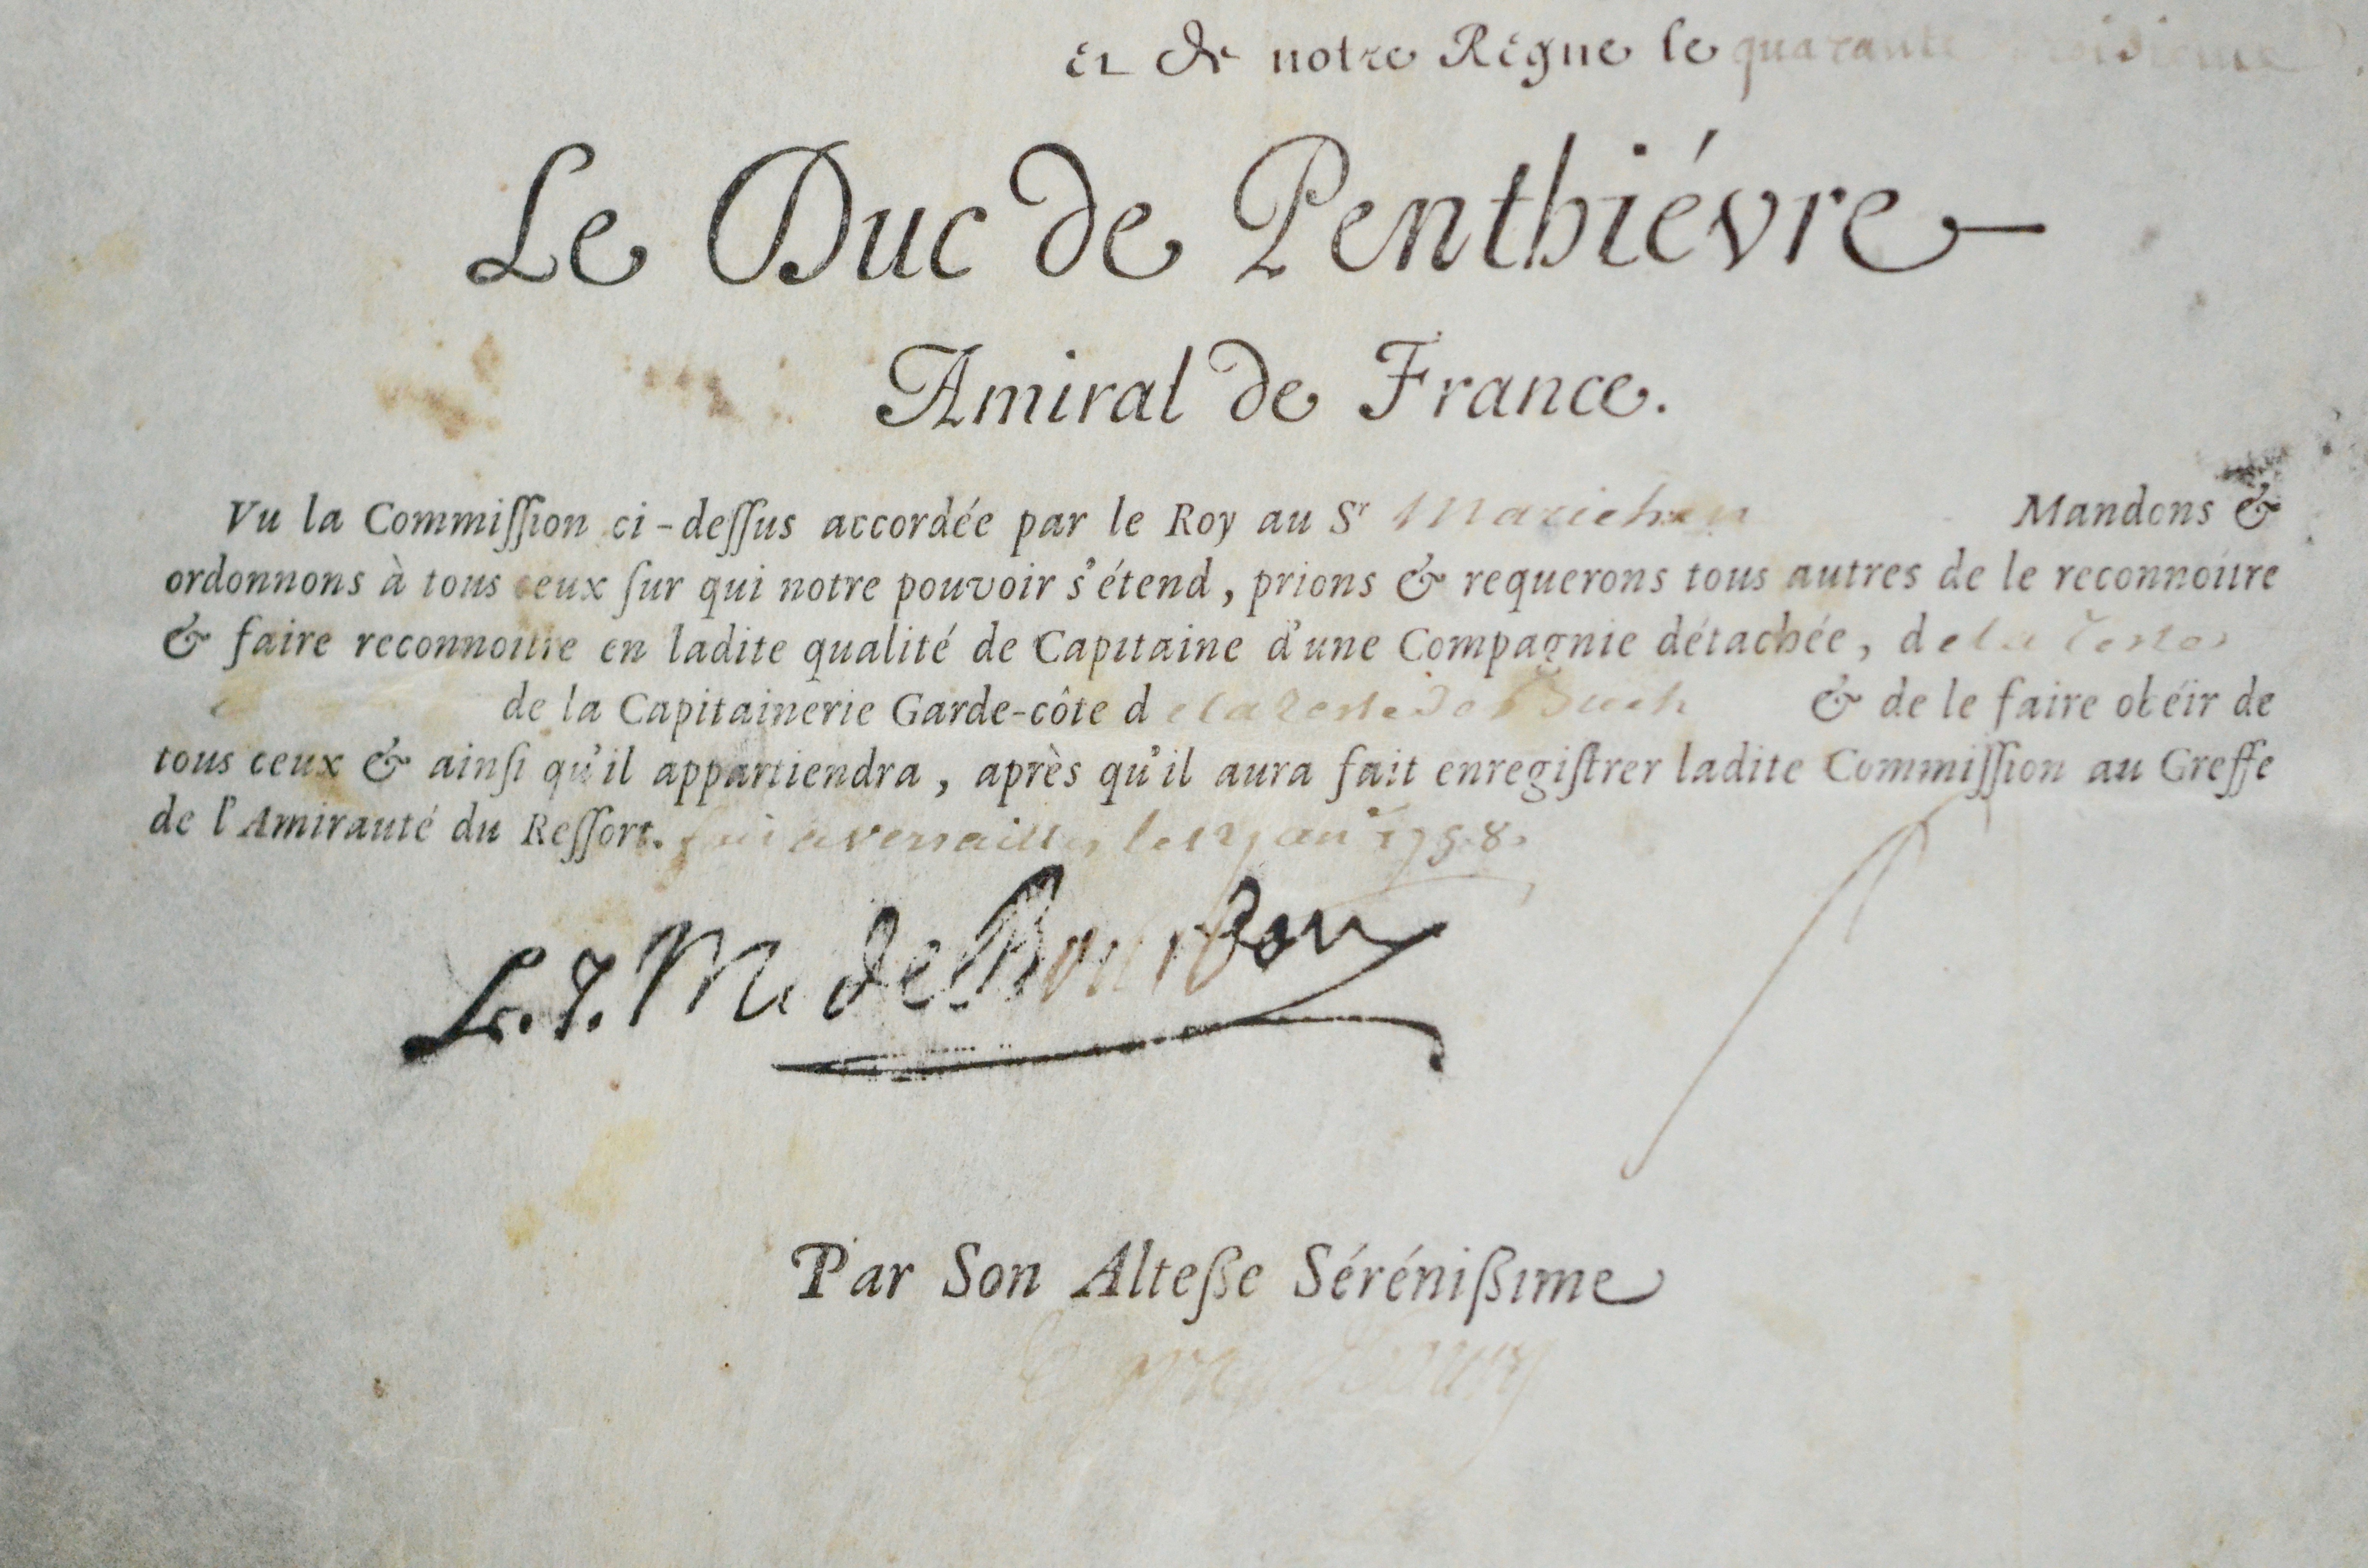 et de notre Règne le quarante troisieme
Le Duc de Penthiévre
Amiral de France.
Vu la Commiſſion ci-deſſus accordée par le Roy au Sr Mandons &
ordonnons à tous ceux ſur qui notre pouvoir s'étend, prions & requerons tous autres de le reconnoitre
& faire reconnoitre en ladite qualité de Capitaine d'une Compagnie détachée, de la Teste
de la Capitainerie Garde-côte de la Teste de Buch & de le faire obéir de
tous ceux & ainſi qu'il appartiendra, après qu'il aura fait enregiſtrer ladite Commiſſion au Greffe
de l'Amirauté du Reſſort. fait a versailles le 1758.
L. J. M. de Bourbon
Par Son Alteße Sérénißime